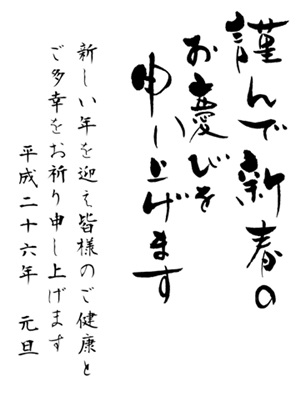 謹んで新春の
お慶びを
申し上げます
新しい年を迎え皆様のご健康と
ご多幸をお祈り申し上げます
平成二十六年 元旦